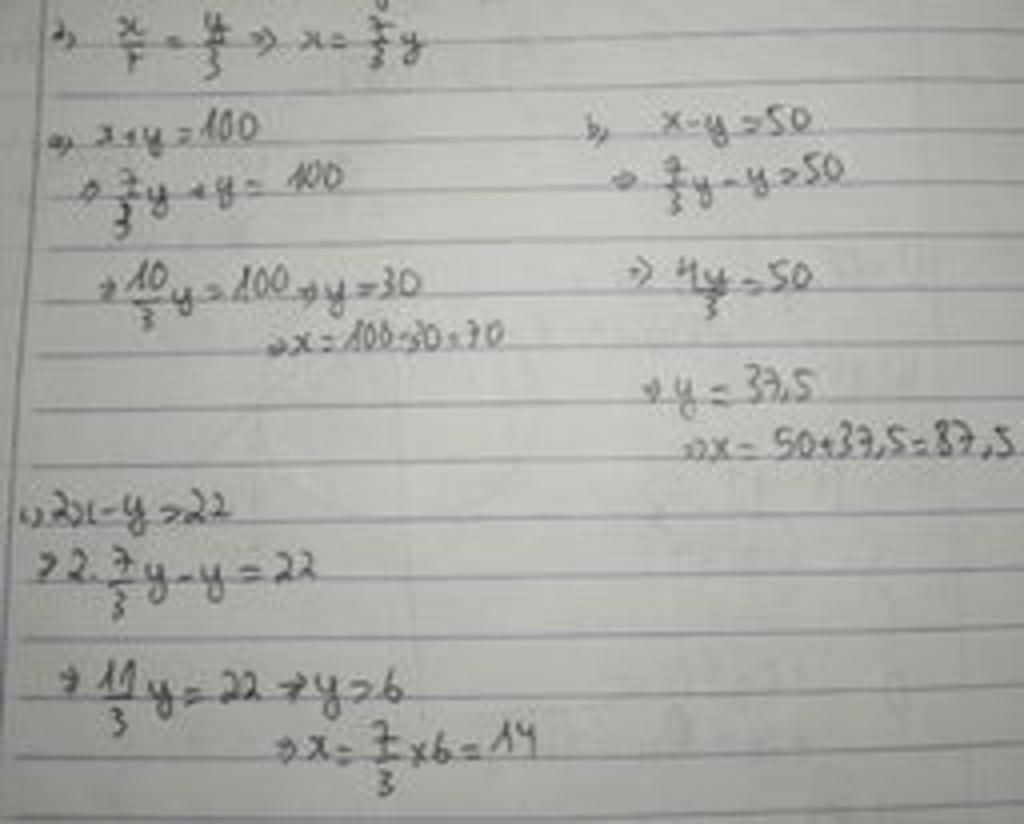 2, x/7 = y/3 => x = 7/3 y
a, x+y = 100
=> 7/3 y + y = 100
=> 10/3 y = 100 => y = 30
=> x = 100-30 = 70
b, x-y = 50
=> 7/3 y - y = 50
=> 4y/3 = 50
=> y = 37,5
=> x = 50+37,5 = 87,5
c, 2x-y = 22
=> 2. 7/3 y - y = 22
=> 11/3 y = 22 => y = 6
=> x = 7/3 x 6 = 14